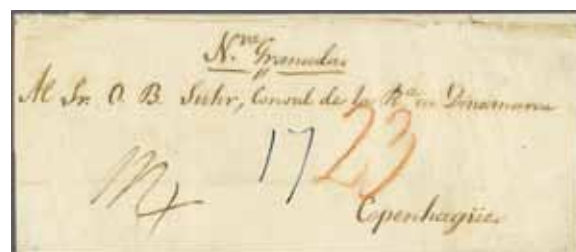 N.va Granada
Al Sr. O. B. Suhr, Consul de la R.a en Dinamarca
17 23
Copenhague